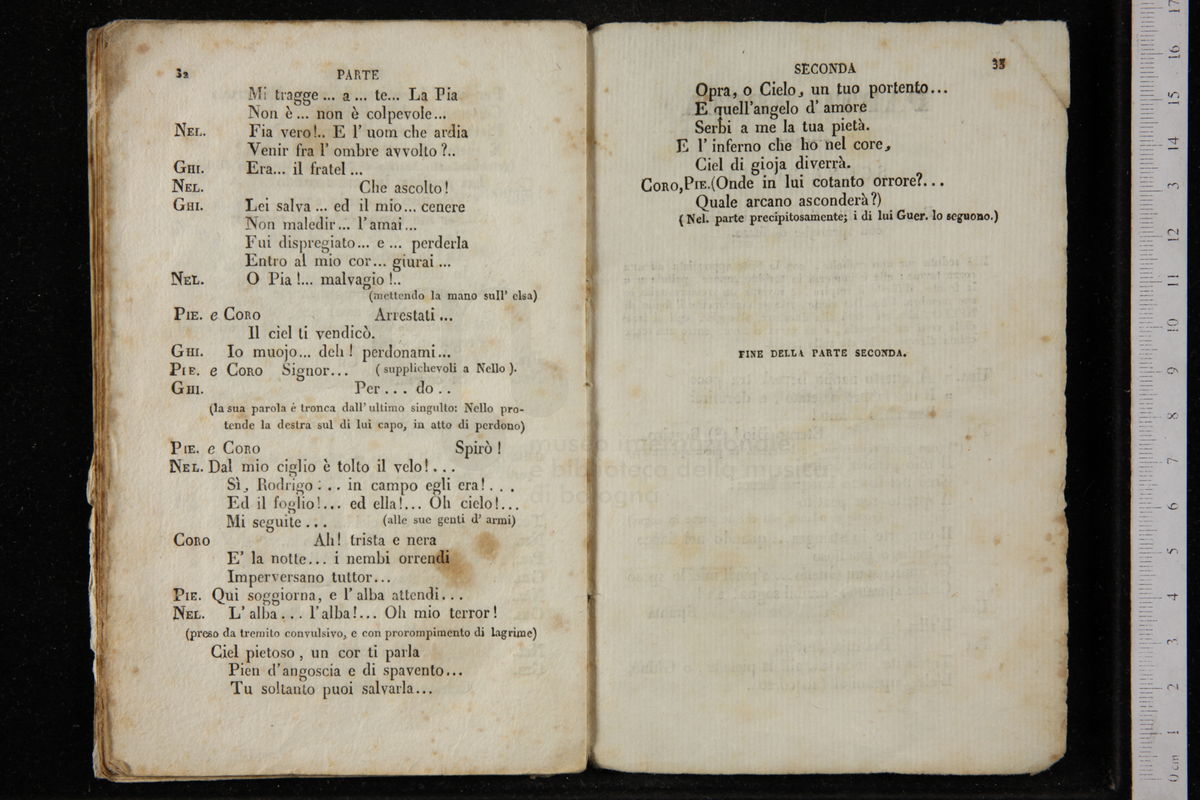 32 PARTE
Mi tragge ... a ... te... La Pia
Non è ... non è colpevole...
NEL. Fia vero!.. E l' uom che ardia
Venir fra l' ombre avvolto ?..
GHI. Era... il fratel ...
NEL. Che ascolto!
GHI. Lei salva ... ed il mio... cenere
Non maledir... l'amai...
Fui dispregiato... e ... perderla
Entro al mio cor... giurai ...
NEL. O Pia !... malvagio !..
(mettendo la mano sull' elsa)
PIE. e CORO Arrestati ...
Il ciel ti vendicò.
GHI. Io muojo... deh ! perdonami...
PIE. e CORO Signor... (supplichevoli a Nello).
GHI. Per . . . do . .
(la sua parola è tronca dall' ultimo singulto: Nello pro-
tende la destra sul di lui capo, in atto di perdono)
PIE. e CORO Spirò !
NEL. Dal mio ciglio è tolto il velo! . . .
Sì, Rodrigo : . . in campo egli era! . . .
Ed il foglio!... ed ella!... Oh cielo!...
Mi seguite . . . (alle sue genti d' armi)
CORO Ah! trista e nera
E' la notte... i nembi orrendi
Imperversano tuttor...
PIE. Qui soggiorna, e l' alba attendi...
NEL. L' alba . . . l'alba!... Oh mio terror!
(preso da tremito convulsivo, e con prorompimento di lagrime)
Ciel pietoso , un cor ti parla
Pien d'angoscia e di spavento...
Tu soltanto puoi salvarla...
SECONDA 33
Opra, o Cielo, un tuo portento...
E quell'angelo d' amore
Serbi a me la tua pietà.
E l' inferno che ho nel core,
Ciel di gioja diverrà.
CORO, PIE. (Onde in lui cotanto orrore?...
Quale arcano asconderà?)
(Nel. parte precipitosamente; i di lui Guer. lo seguono.)
FINE DELLA PARTE SECONDA.
museo internazionale
e biblioteca della musica
di bologna
0 cm 1 2 3 4 5 6 7 8 9 10 11 12 13 14 15 16 17